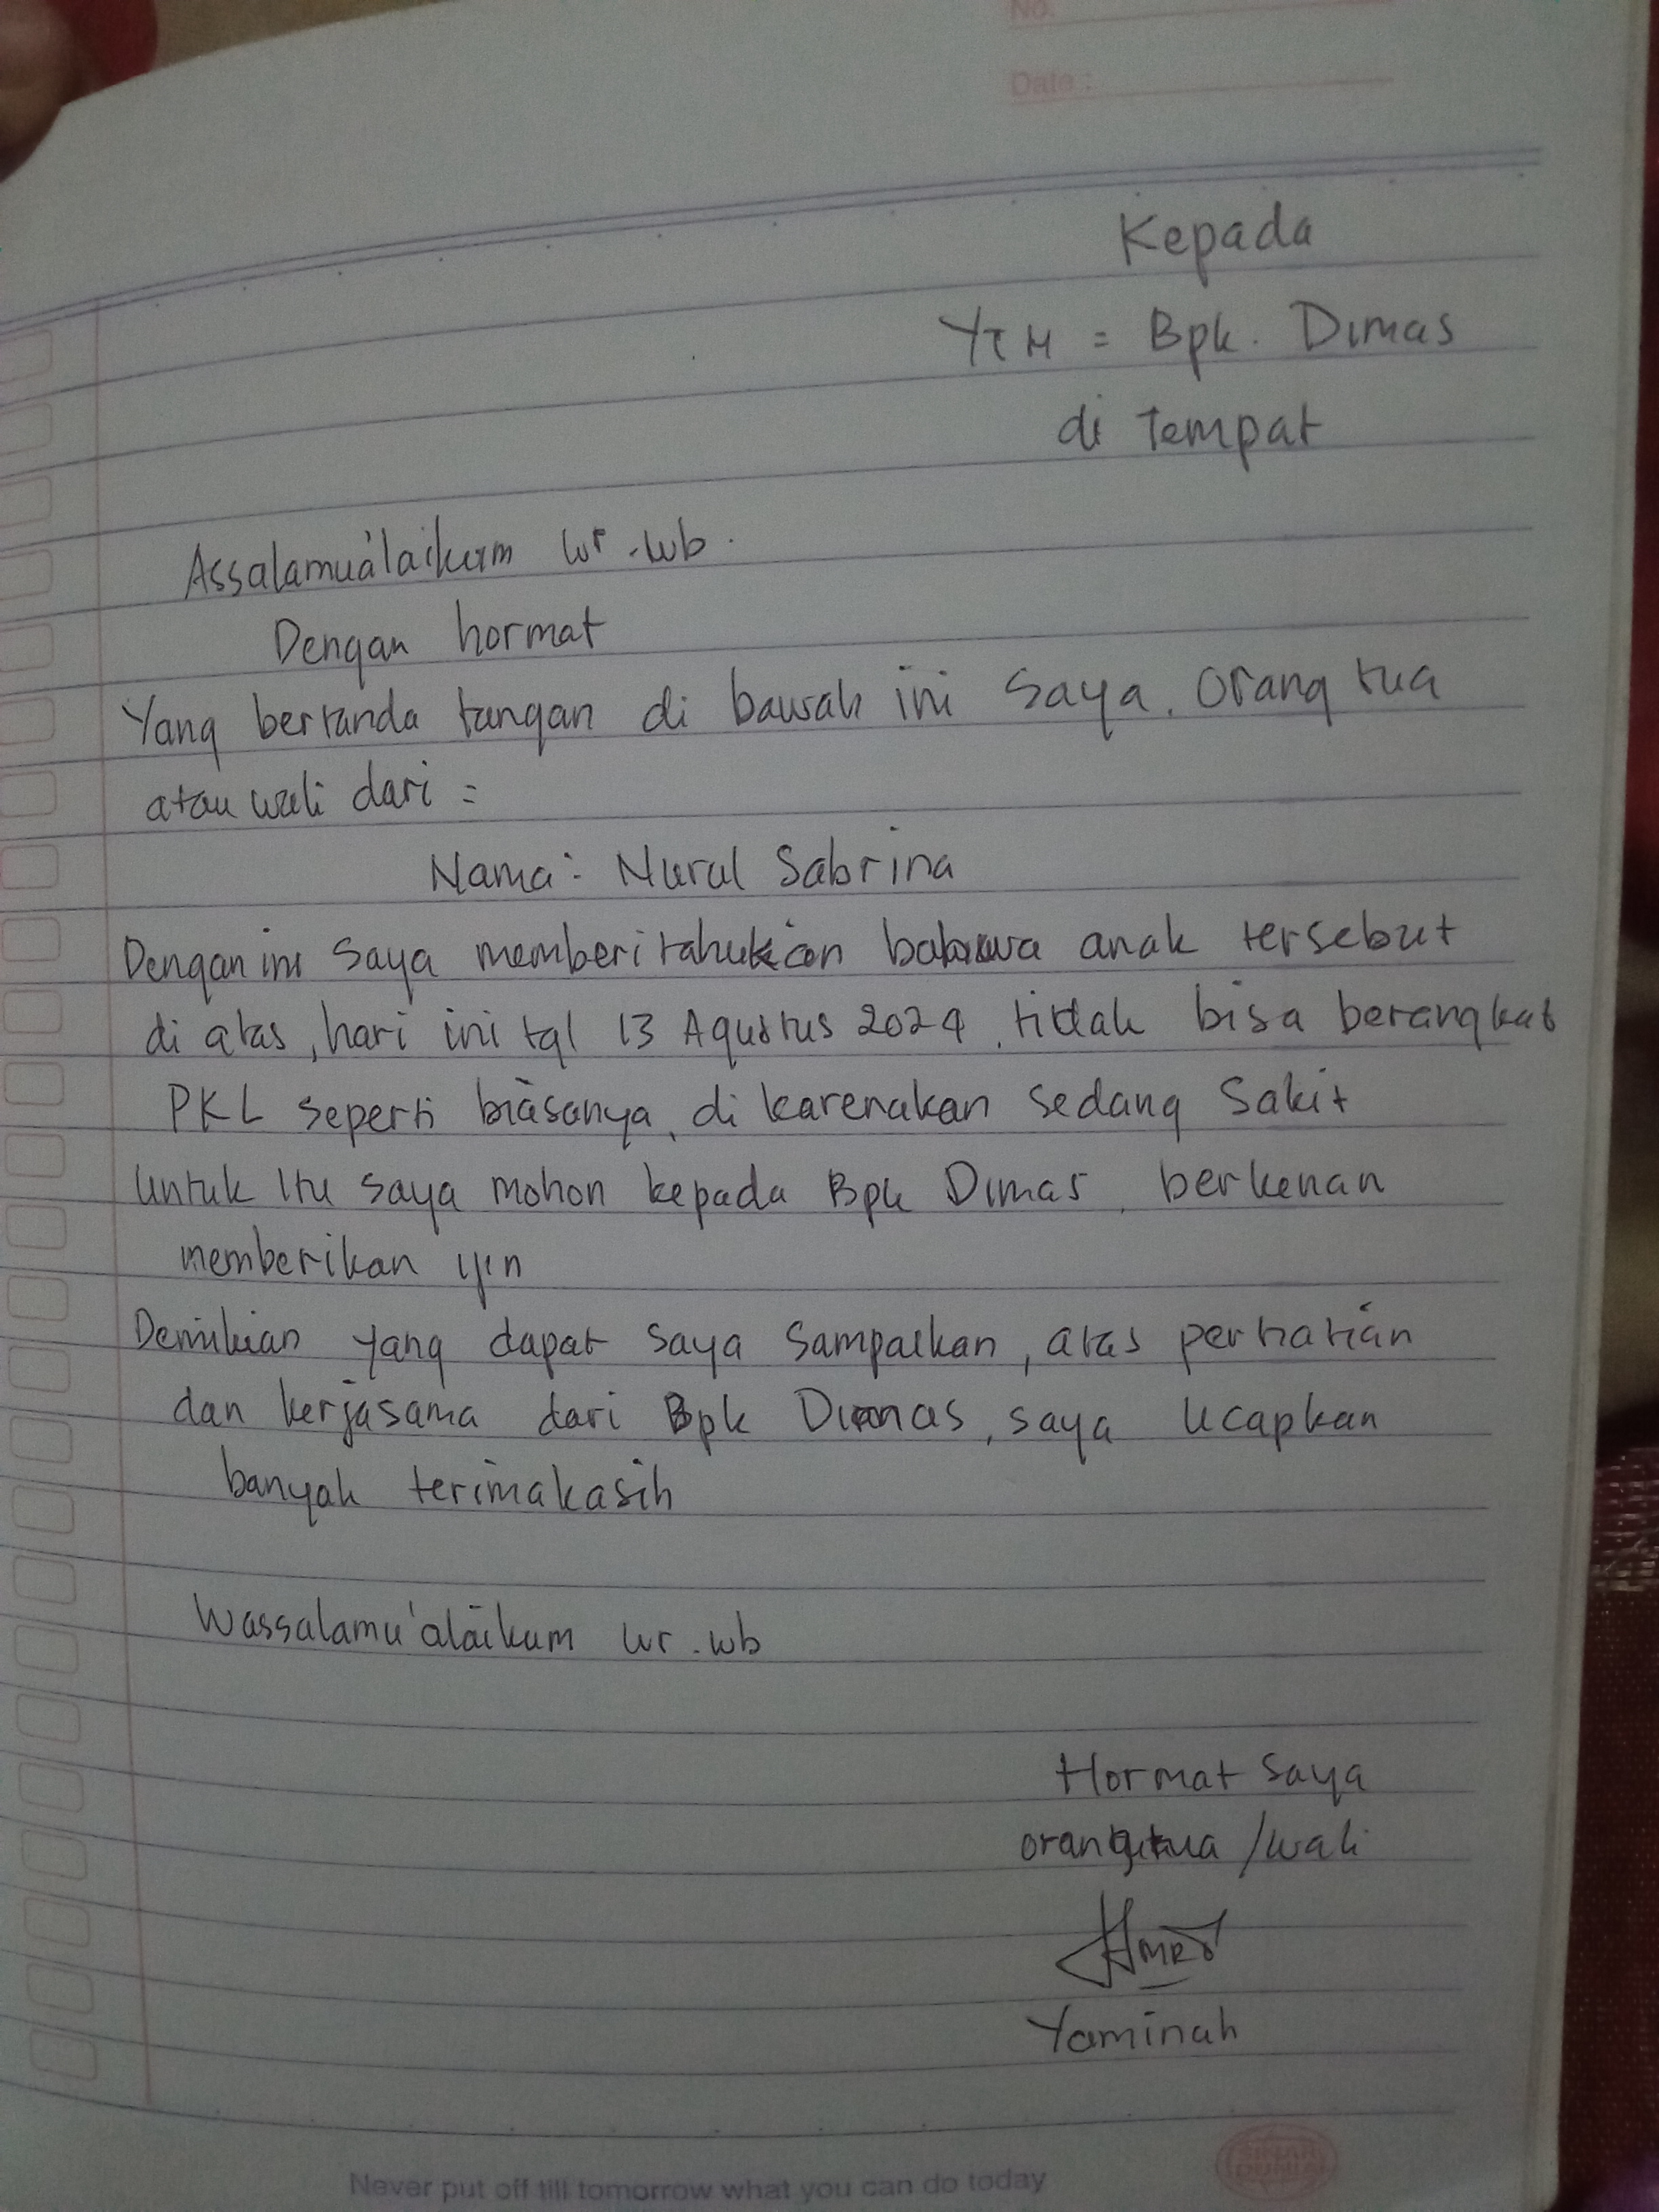 No.
Date :
Kepada
YTH = Bpk. Dimas
di Tempat
Assalamuálaikum wr.wb.
Dengan hormat
Yang bertanda tangan di bawah ini saya, orang tua
atau wali dari =
Nama: Nurul Sabrina
Dengan ini saya memberitahukan bahwa anak tersebut
di atas, hari ini tgl 13 Agustus 2024, tidak bisa berangkat
PKL seperti biasanya, di karenakan sedang Sakit
Untuk itu saya mohon kepada Bpk Dimas, berkenan
memberikan ijin
Demikian yang dapat saya sampaikan, atas perhatian
dan kerjasama dari Bpk Dimas, saya ucapkan
banyak terimakasih
Wassalamu'alaikum wr.wb
Hormat saya
orangtua /wali
Yaminah
Never put off till tomorrow what you can do today
SINAR DUNIA